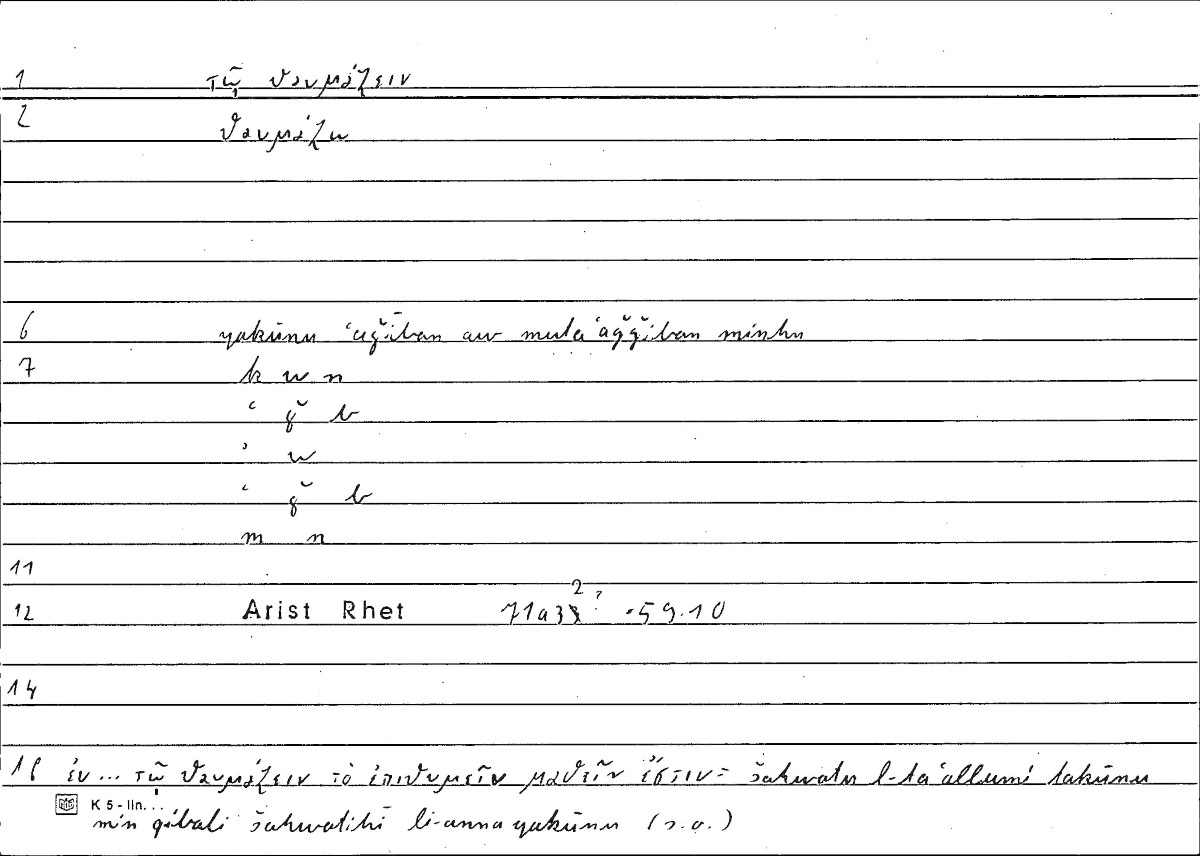 1 τῷ θαυμάζειν
2 θαυμάζω
6 yakūnu ʿaǧīban aw mutaʿaǧǧiban minhu
7 k w n
ʿ ǧ b
ʾ w
ʿ ǧ b
m n
11
12 Arist Rhet 71a32 59.10
14
ἐν... τῷ θαυμάζειν τὸ ἐπιθυμεῖν μαθεῖν ἐστιν = šahwatu l-taʿallumi takūnu
K 5 - lln. . .
min qibali šahwatihī li-anna yakūnu (s.o.)